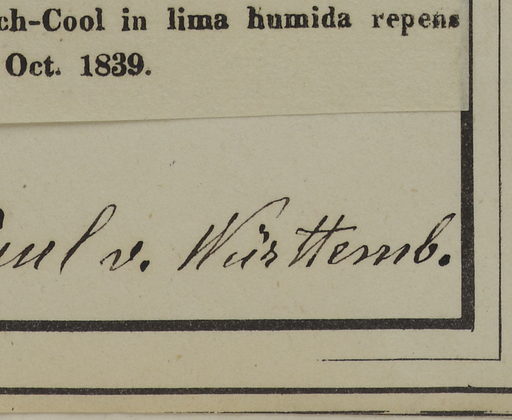 ch-Cool in lima humida repens
Oct. 1839.
Paul v. Württemb.